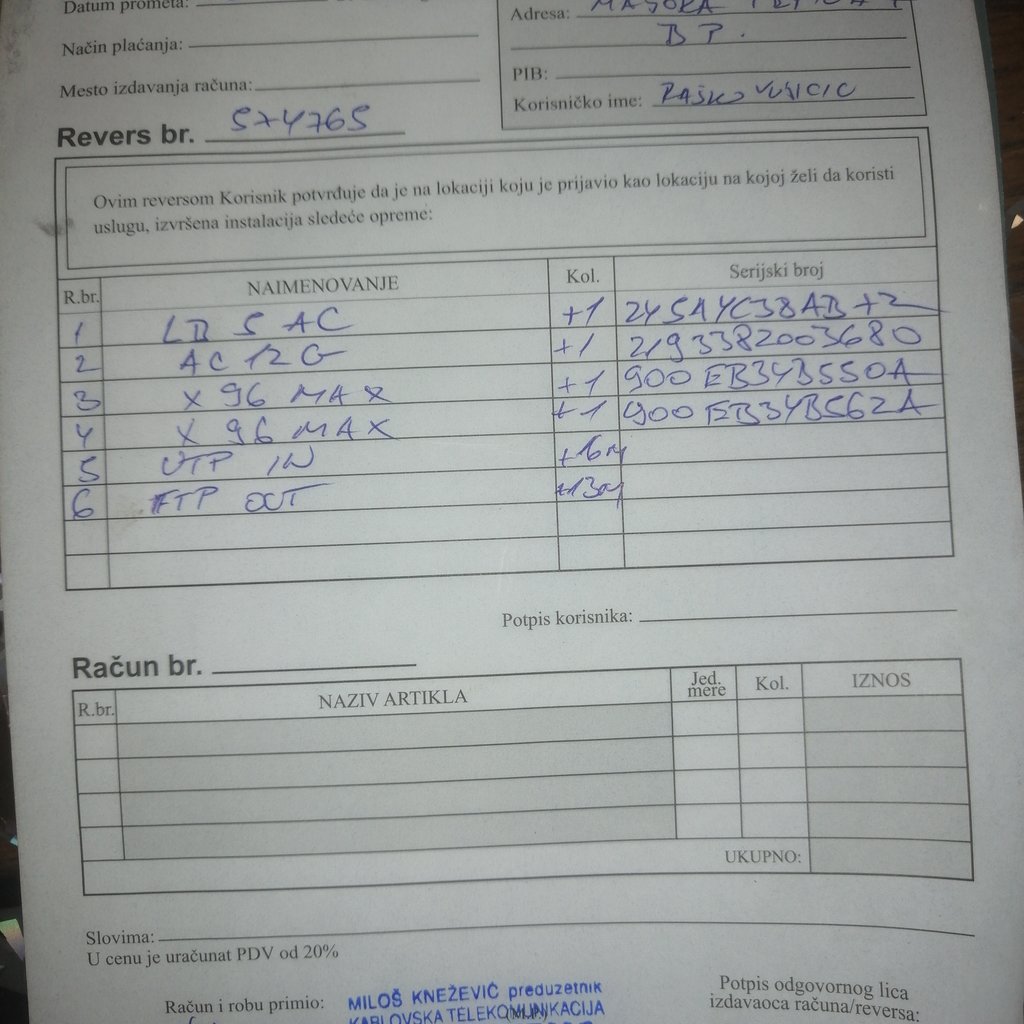 Datum prometa:
Adresa: MAJORA
Način plaćanja:
BP.
Mesto izdavanja računa:
PIB:
Korisničko ime: RAŠKO VUJICIC
Revers br. 574765
Ovim reversom Korisnik potvrđuje da je na lokaciji koju je prijavio kao lokaciju na kojoj želi da koristi
uslugu, izvršena instalacija sledeće opreme:
R.br. NAIMENOVANJE Kol. Serijski broj
1 LB 5 AC +1 245A4C38AB72
2 AC 12 G +1 2193382003680
3 X 96 MAX +1 900EB34B550A
4 X 96 MAX +1 900EB34B562A
5 UTP IN +16m
6 FTP OUT +13m
Potpis korisnika:
Račun br.
R.br. NAZIV ARTIKLA Jed. mere Kol. IZNOS
UKUPNO:
Slovima:
U cenu je uračunat PDV od 20%
Račun i robu primio:
MILOŠ KNEŽEVIĆ preduzetnik
KABLOVSKA TELEKOMUNIKACIJA
(M.P.)
Potpis odgovornog lica
izdavaoca računa/reversa: